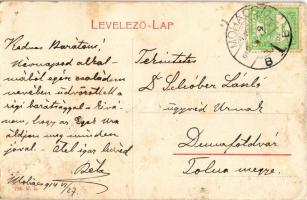 LEVELEZŐ-LAP
Kedves Barátom!
Névnapod alkal-
mából egész családom
nevében üdvözöllek a
régi barátsággal – kivá-
nom, hogy az Egek Ura
áldjon meg minden
jóval. – Ölel igaz híved
Béla
Mohács 914 VI/27.
Tekintetes
Dr Schóber László
ügyvéd Urnak
Dunaföldvár
Tolna megye.
MOHÁCS